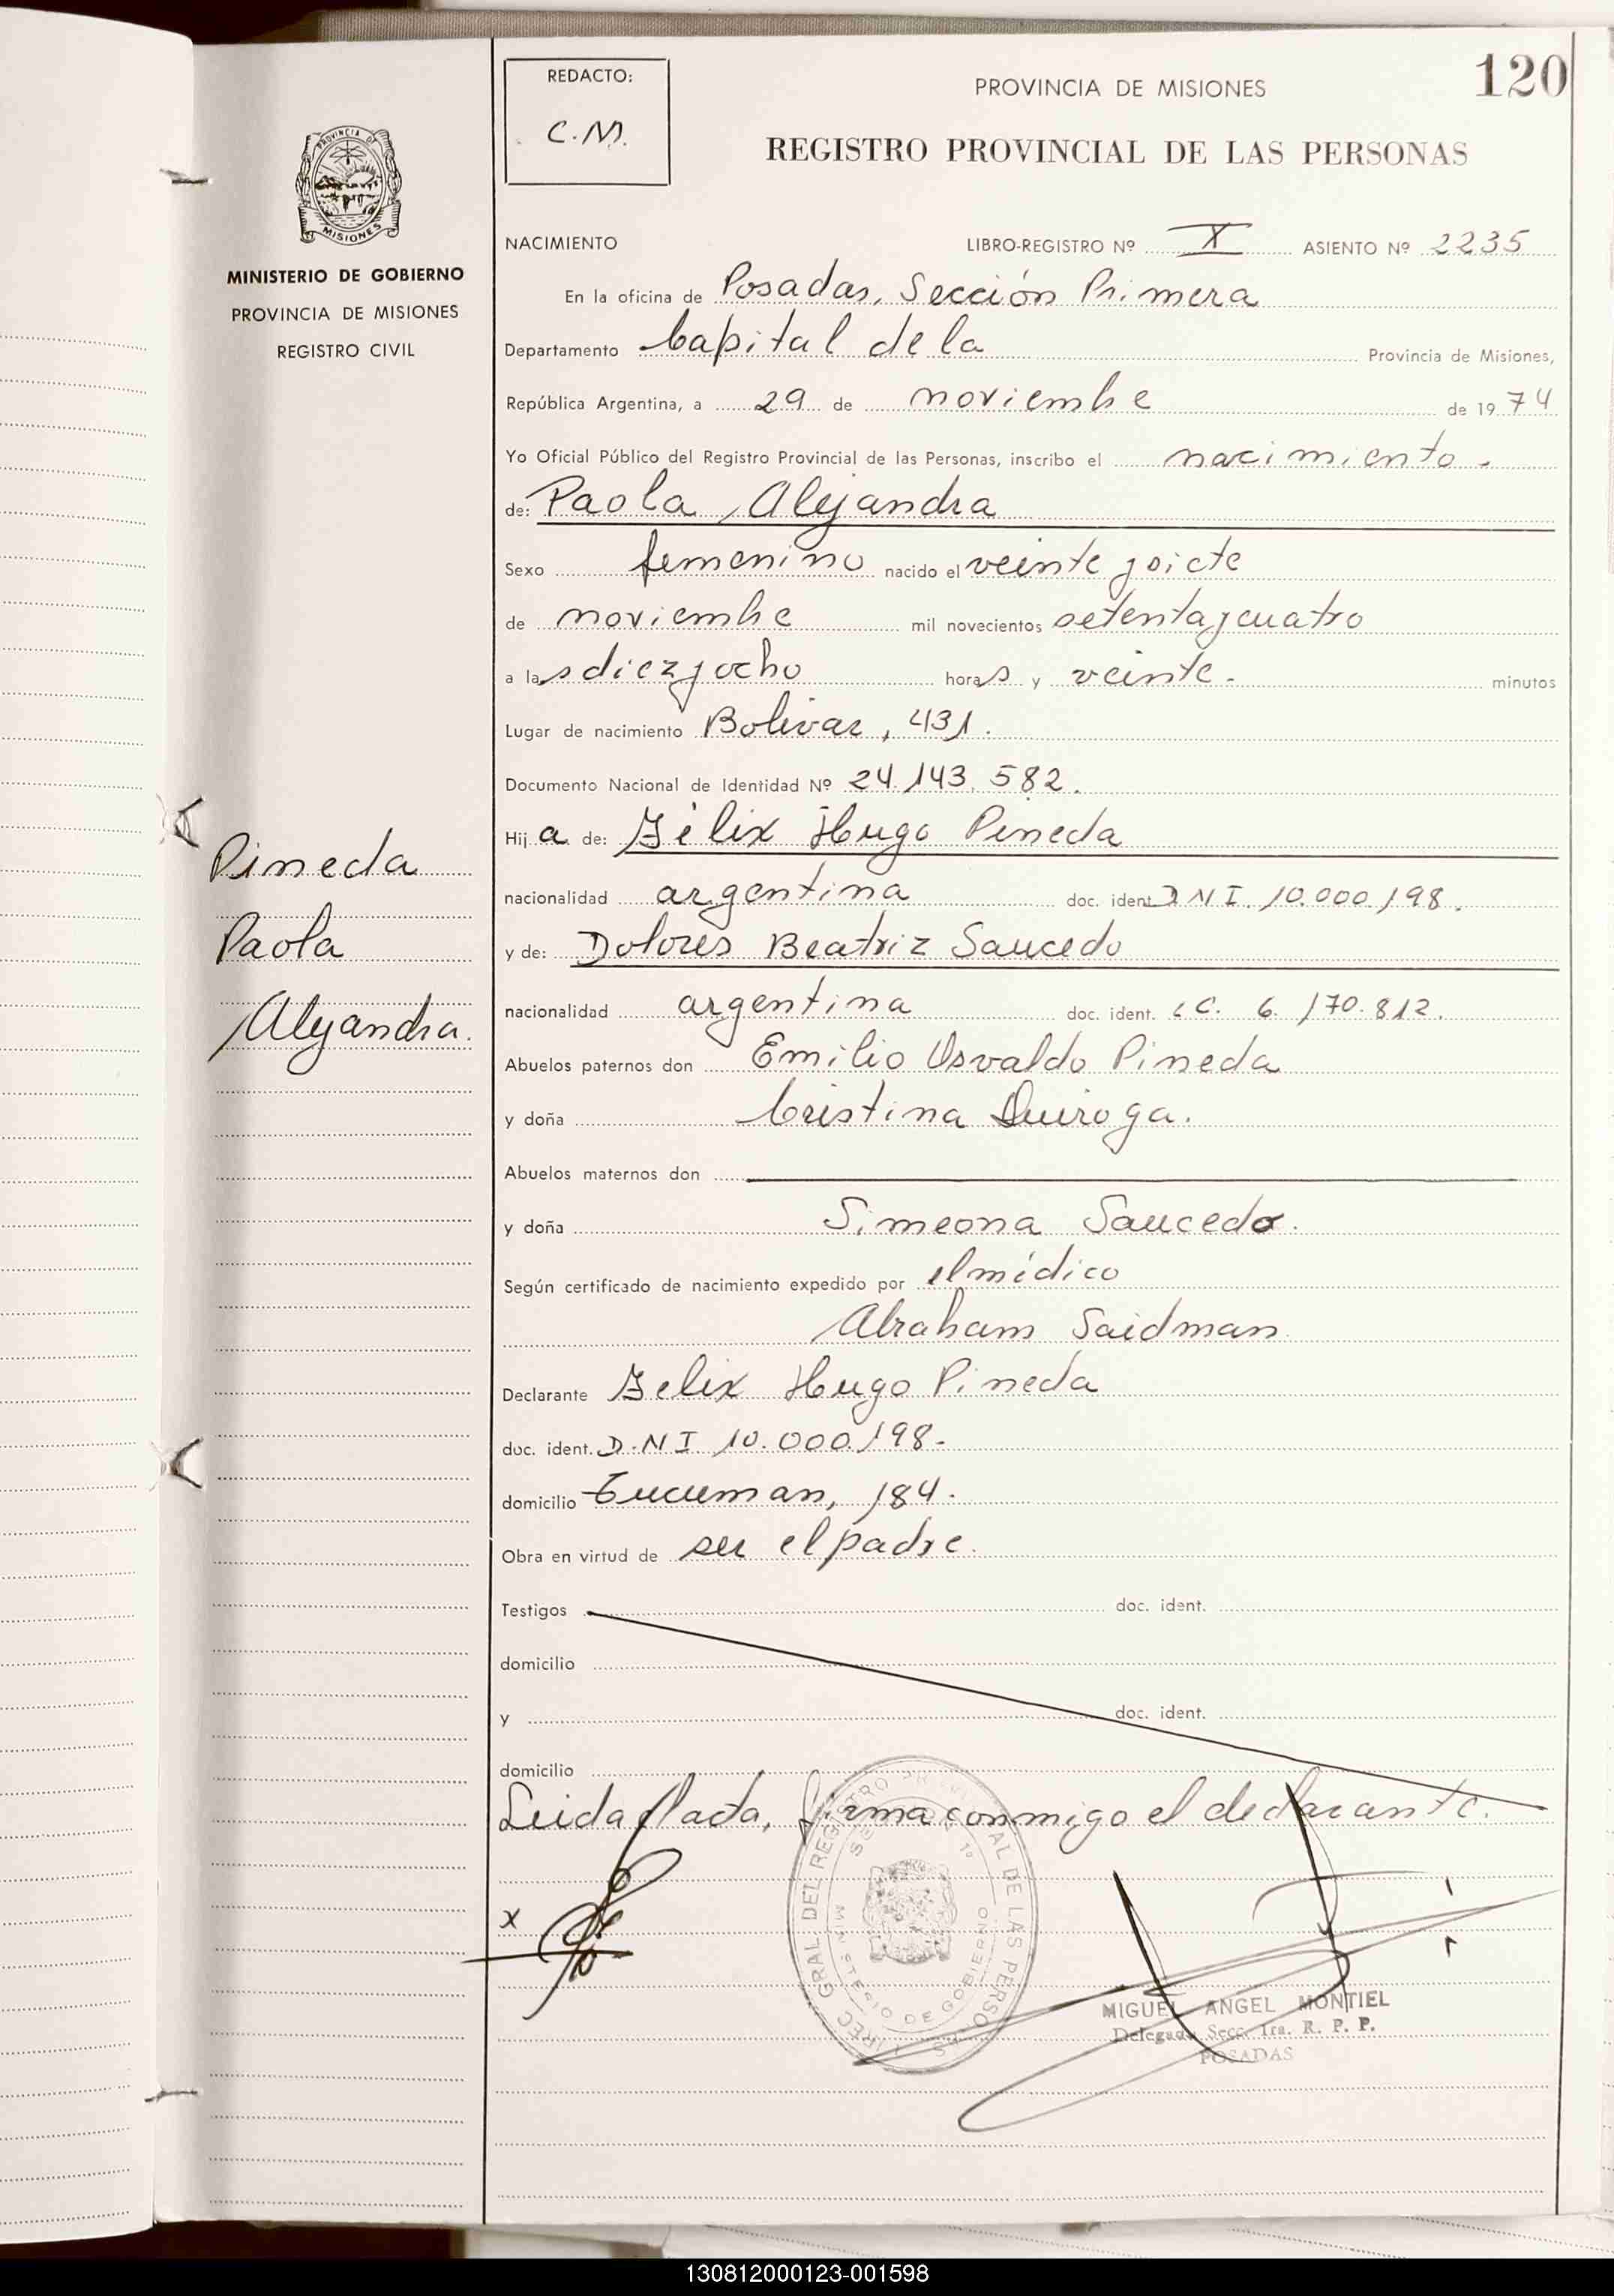 120
REDACTO:
C.M.
PROVINCIA DE MISIONES
REGISTRO PROVINCIAL DE LAS PERSONAS
PROVINCIA DE
MISIONES
MINISTERIO DE GOBIERNO
PROVINCIA DE MISIONES
REGISTRO CIVIL
NACIMIENTO LIBRO-REGISTRO Nº X ASIENTO Nº 2235
En la oficina de Posadas, Sección Primera
Departamento Capital de la Provincia de Misiones,
República Argentina, a 29 de noviembre de 1974
Yo Oficial Público del Registro Provincial de las Personas, inscribo el nacimiento.
de: Paola Alejandra
Sexo femenino nacido el veinte y siete
de noviembre mil novecientos setenta y cuatro
a las diez y ocho horas y veinte. minutos
Lugar de nacimiento Bolivar, 431.
Documento Nacional de Identidad Nº 24.143.582.
Hija de: Félix Hugo Pineda
nacionalidad argentina doc. ident. D.N.I. 10.000.198.
y de: Dolores Beatriz Saucedo
nacionalidad argentina doc. ident. LC. 6.170.812.
Abuelos paternos don Emilio Osvaldo Pineda
y doña Cristina Quiroga.
Abuelos maternos don
y doña Simeona Saucedo.
Según certificado de nacimiento expedido por el médico
Abraham Saidman
Declarante Felix Hugo Pineda
doc. ident. D.N I 10.000.198.
domicilio Tucuman, 184.
Obra en virtud de ser el padre.
Testigos doc. ident.
domicilio
y doc. ident.
domicilio
Leida el acta, firma conmigo el declarante.
x
MIGUEL ANGEL MONTIEL
Delegado Secc. 1ra. R. P. P.
POSADAS
Pineda
Paola
Alejandra.
130812000123-001598